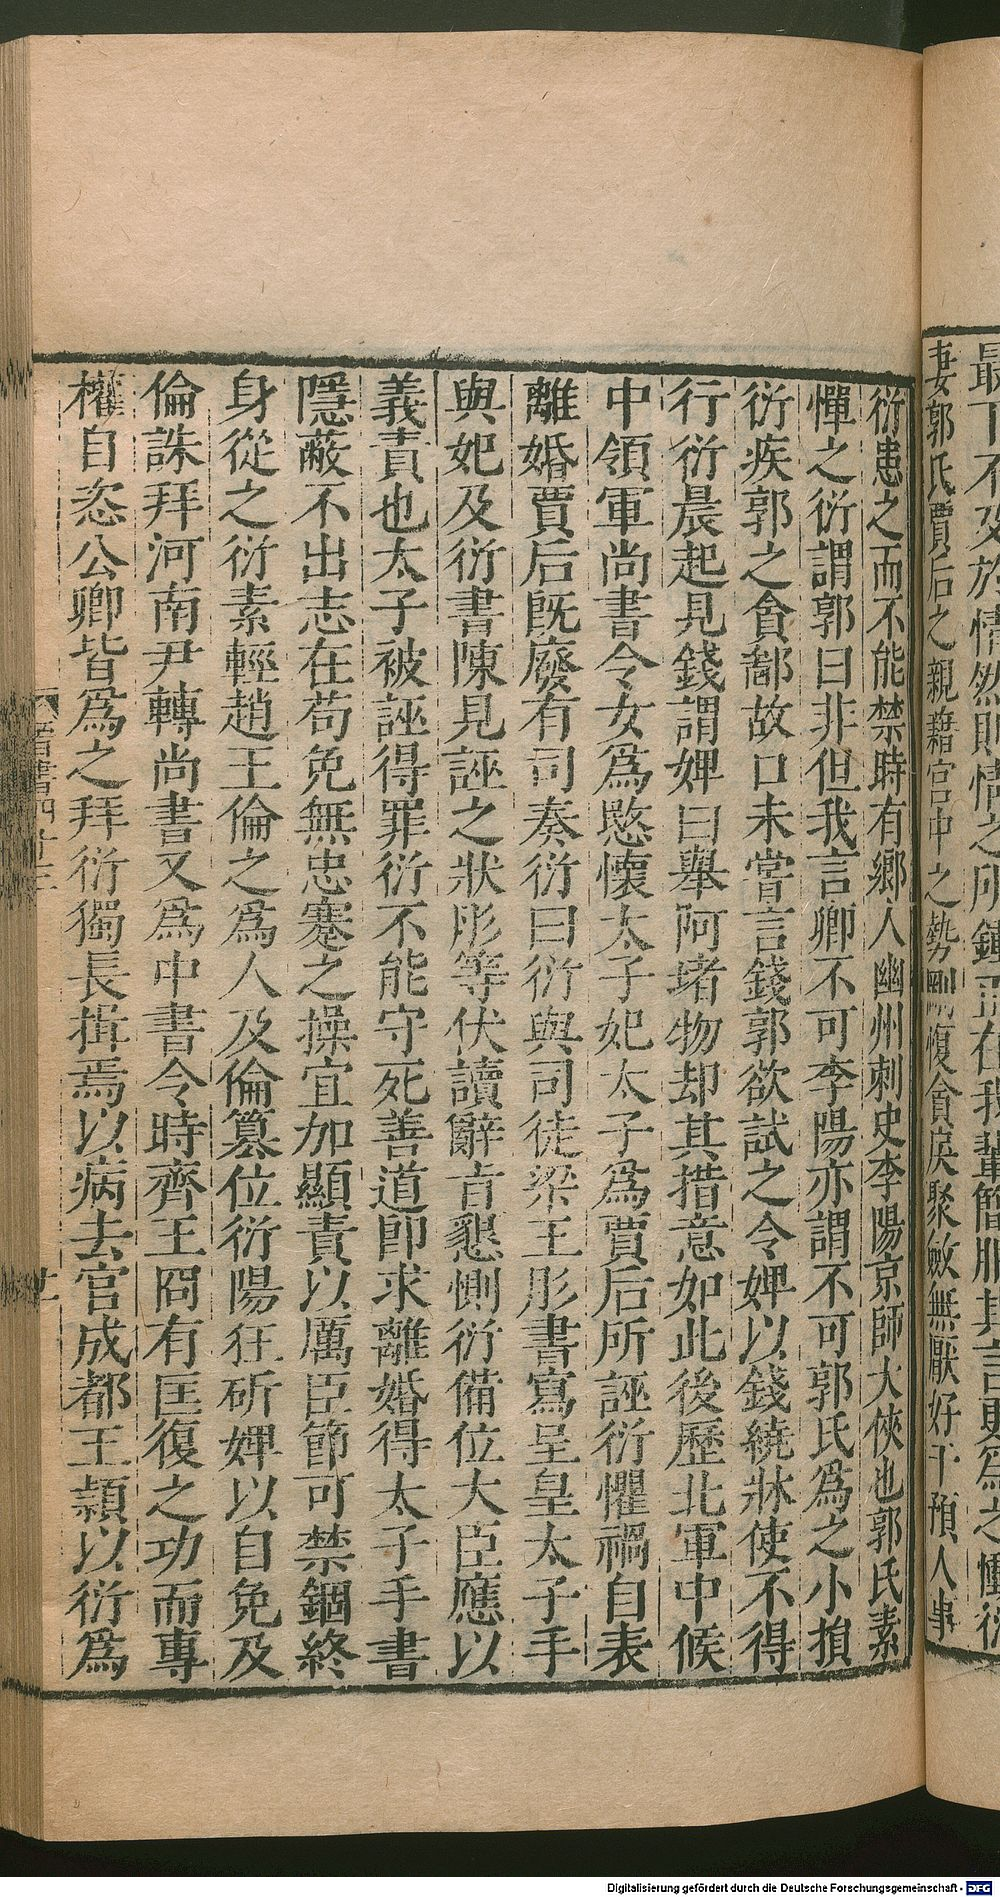 最下不及於情然則情之所鍾正在我輩簡服其言更爲之慟衍
妻郭氏賈后之親藉宮中之勢剛愎貪戾聚斂無厭好干預人事
衍患之而不能禁時有鄉人幽州刺史李陽京師大俠也郭氏素
憚之衍謂郭曰非但我言卿不可李陽亦謂不可郭氏爲之小損
衍疾郭之貪鄙故口未嘗言錢郭欲試之令婢以錢繞牀使不得
行衍晨起見錢謂婢曰舉阿堵物却其措意如此後歷北軍中候
中領軍尚書令女爲愍懷太子妃太子爲賈后所誣衍懼禍自表
離婚賈后既廢有司奏衍曰衍與司徒梁王肜書寫呈皇太子手
與妃及衍書陳見誣之狀肜等伏讀辭旨懇惻衍備位大臣應以
義責也太子被誣得罪衍不能守死善道即求離婚得太子手書
隱蔽不出志在苟免無忠蹇之操宜加顯責以厲臣節可禁錮終
身從之衍素輕趙王倫之爲人及倫簒位衍陽狂斫婢以自免及
倫誅拜河南尹轉尚書又爲中書令時齊王冏有匡復之功而專
權自恣公卿皆爲之拜衍獨長揖焉以病去官成都王穎以衍爲
晉書四十三
Digitalisierung gefördert durch die Deutsche Forschungsgemeinschaft - DFG